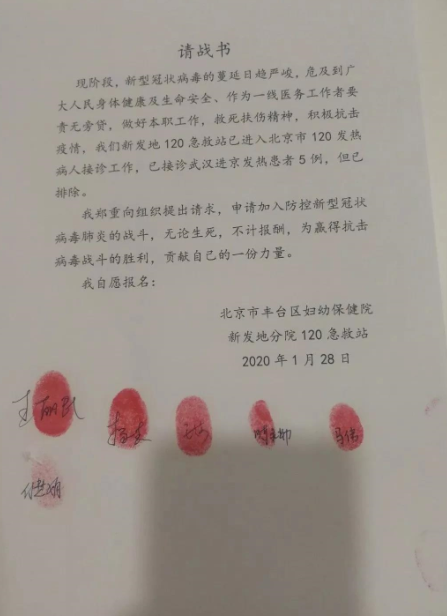 请战书
现阶段，新型冠状病毒的蔓延日趋严峻，危及到广
大人民身体健康及生命安全、作为一线医务工作者要
责无旁贷，做好本职工作，救死扶伤精神，积极抗击
疫情，我们新发地120急救站已进入北京市120发热
病人接诊工作，已接诊武汉进京发热患者5例，但已
排除。
我郑重向组织提出请求，申请加入防控新型冠状
病毒肺炎的战斗，无论生死，不计报酬，为赢得抗击
病毒战斗的胜利，贡献自己的一份力量。
我自愿报名：
北京市丰台区妇幼保健院
新发地分院120急救站
2020年1月28日